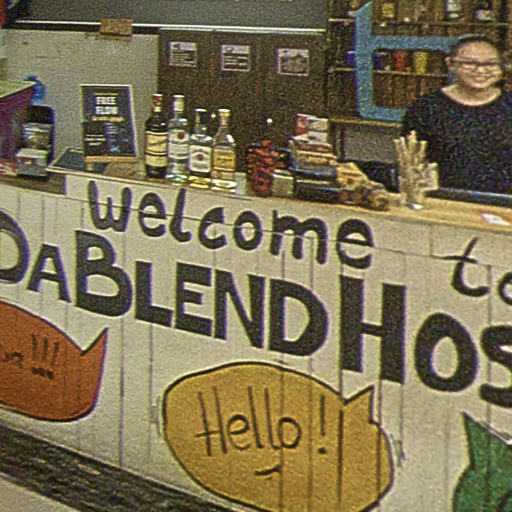 FREE
FLOW
welcome to
DABLENDHOS
!!!
Hello!